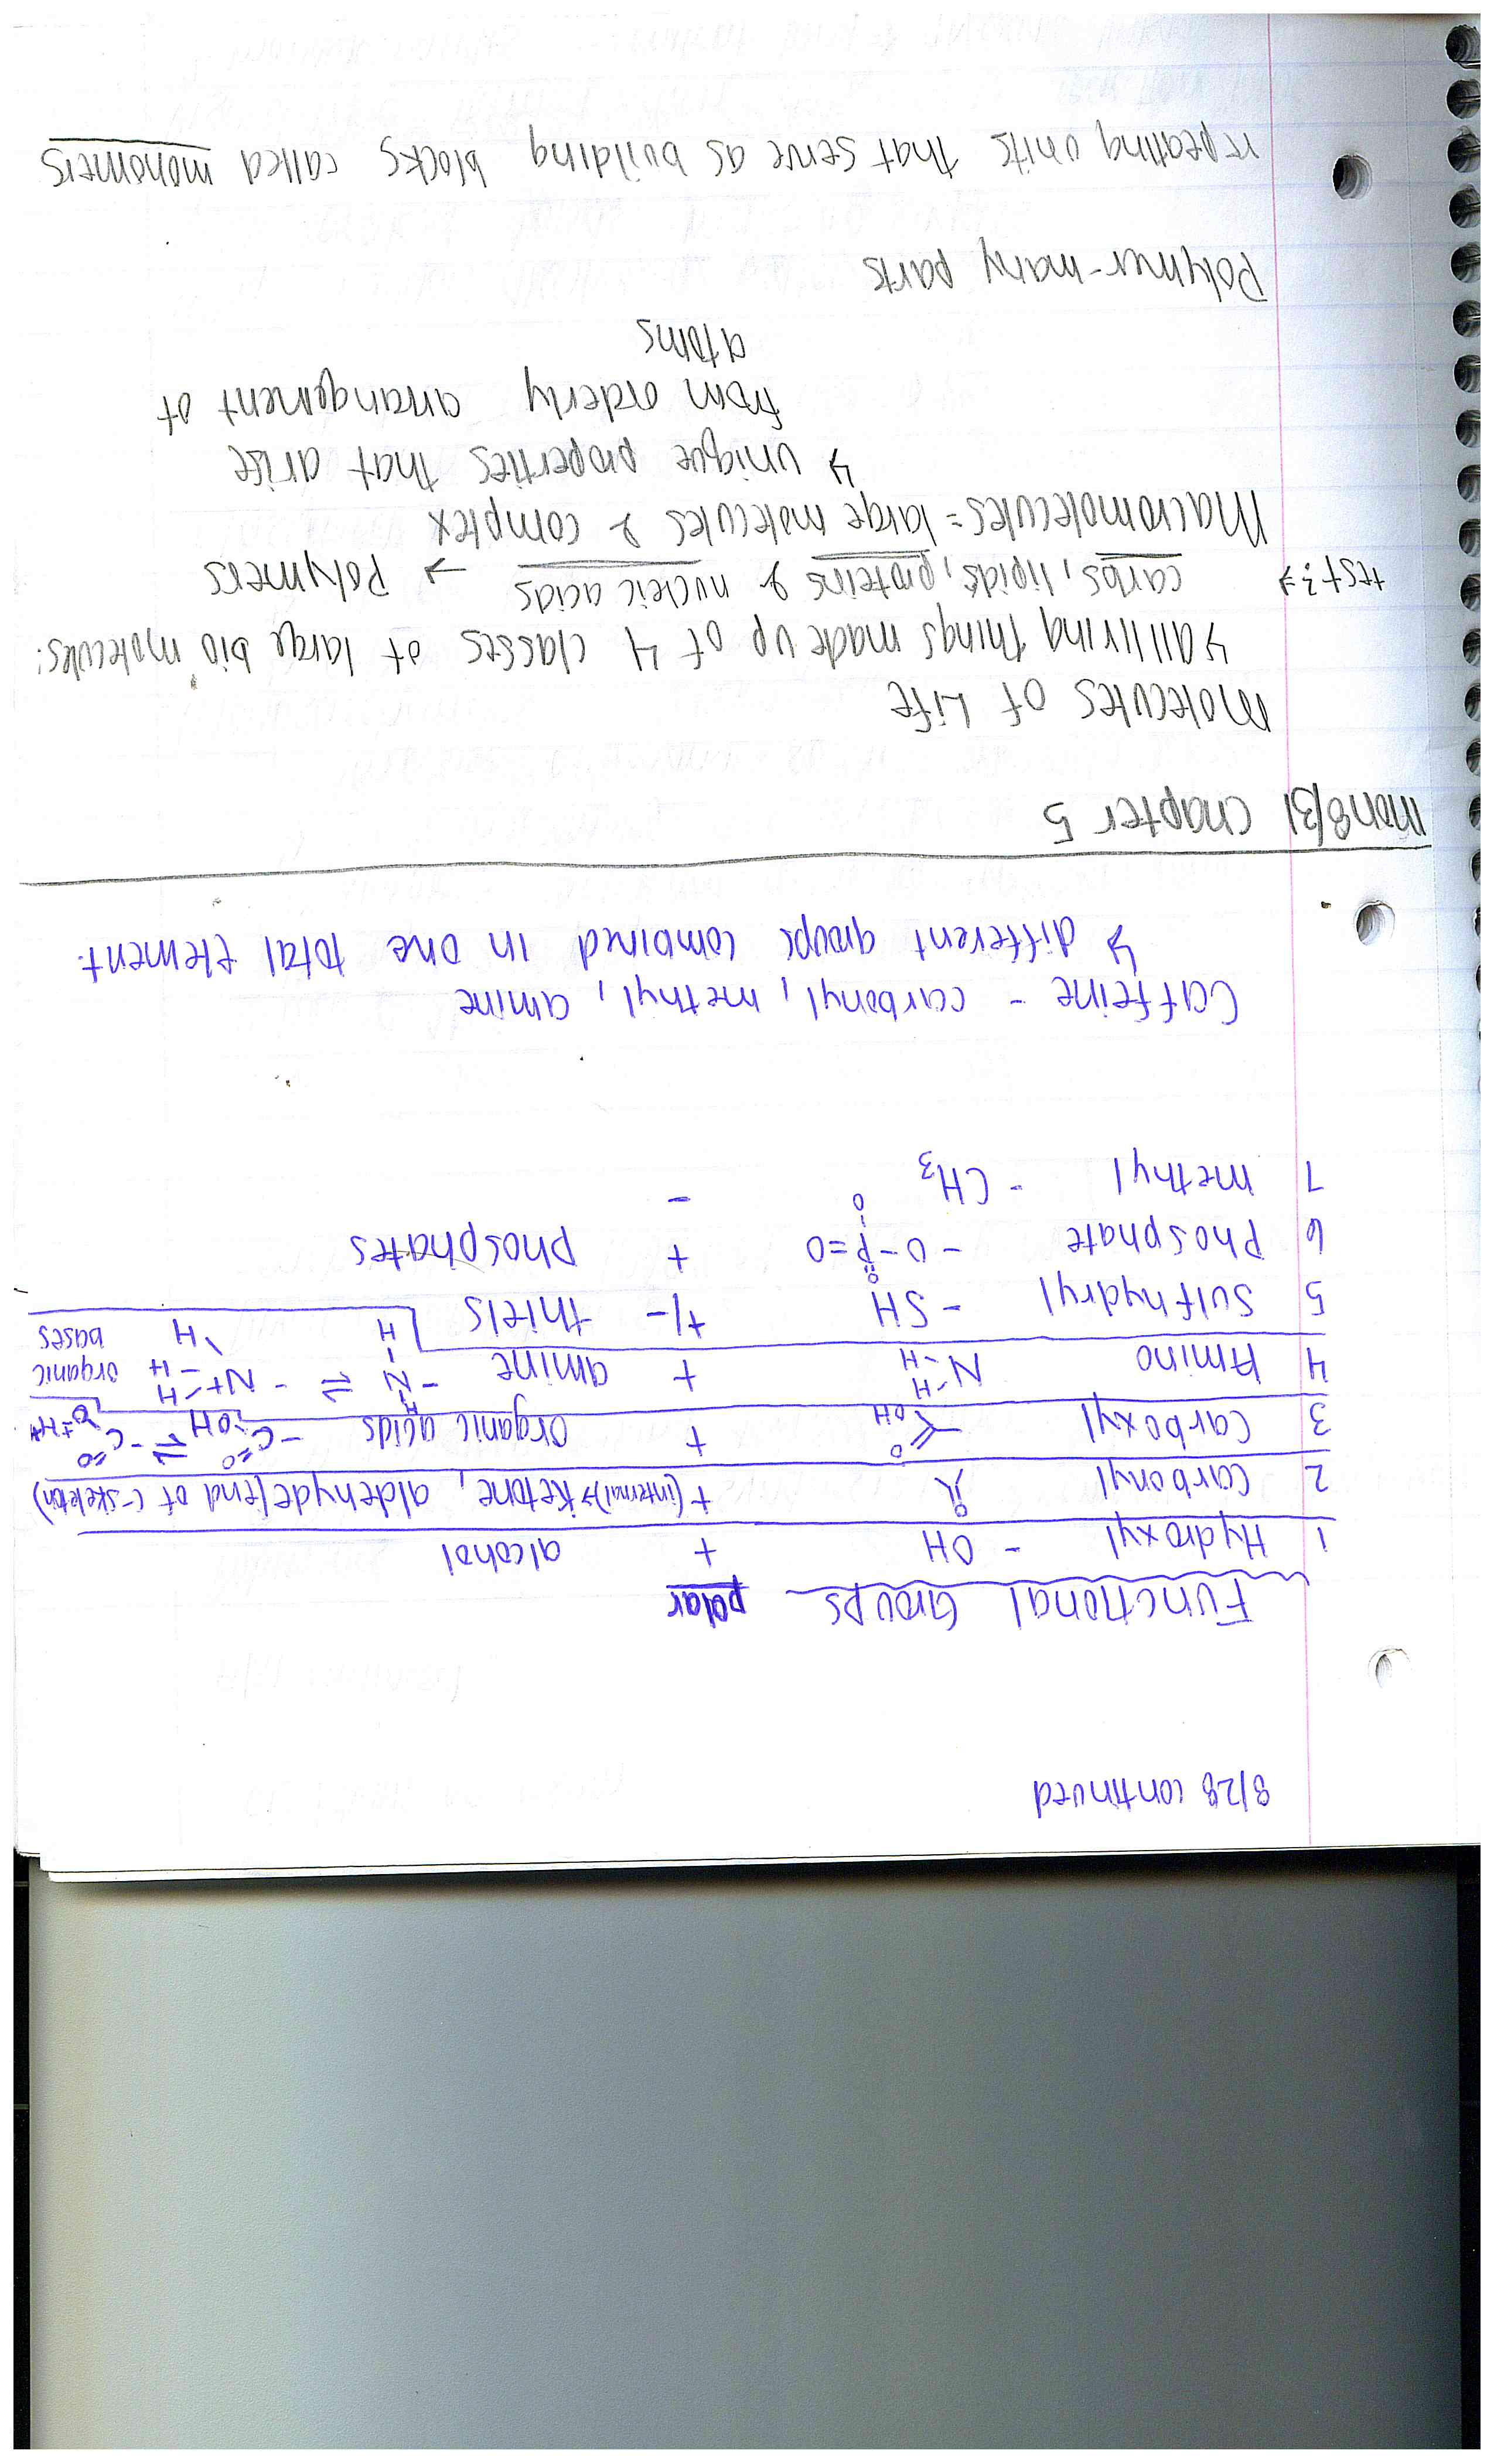 8/28 continued
Functional Groups polar
1 Hydroxyl - OH + alcohol
2 carbonyl O + (internal)→ Ketone, aldehyde (end of C-skeleton)
3 carboxyl O OH + organic acids -C=O -OH ⇌ -C=O O + H+
4 Amino N-H -H + amine -N-H H ⇌ -N+-H -H H organic bases
5 Sulfhydryl - SH +/- thiols
6 Phosphate - O-P=O O O + phosphates
7 methyl - CH3 -
Caffeine - carbonyl, methyl, amine
↳ different groups combined in one total element.
mon 8/31 Chapter 5
Molecules of Life
↳ all living things made up of 4 classes of large bio molecules:
test: → carbs, lipids, proteins & nucleic acids → Polymers
Macromolecules = large molecules & complex
↳ unique properties that arise
from orderly arrangement of
atoms
Polymer - many parts
repeating units that serve as building blocks called monomers